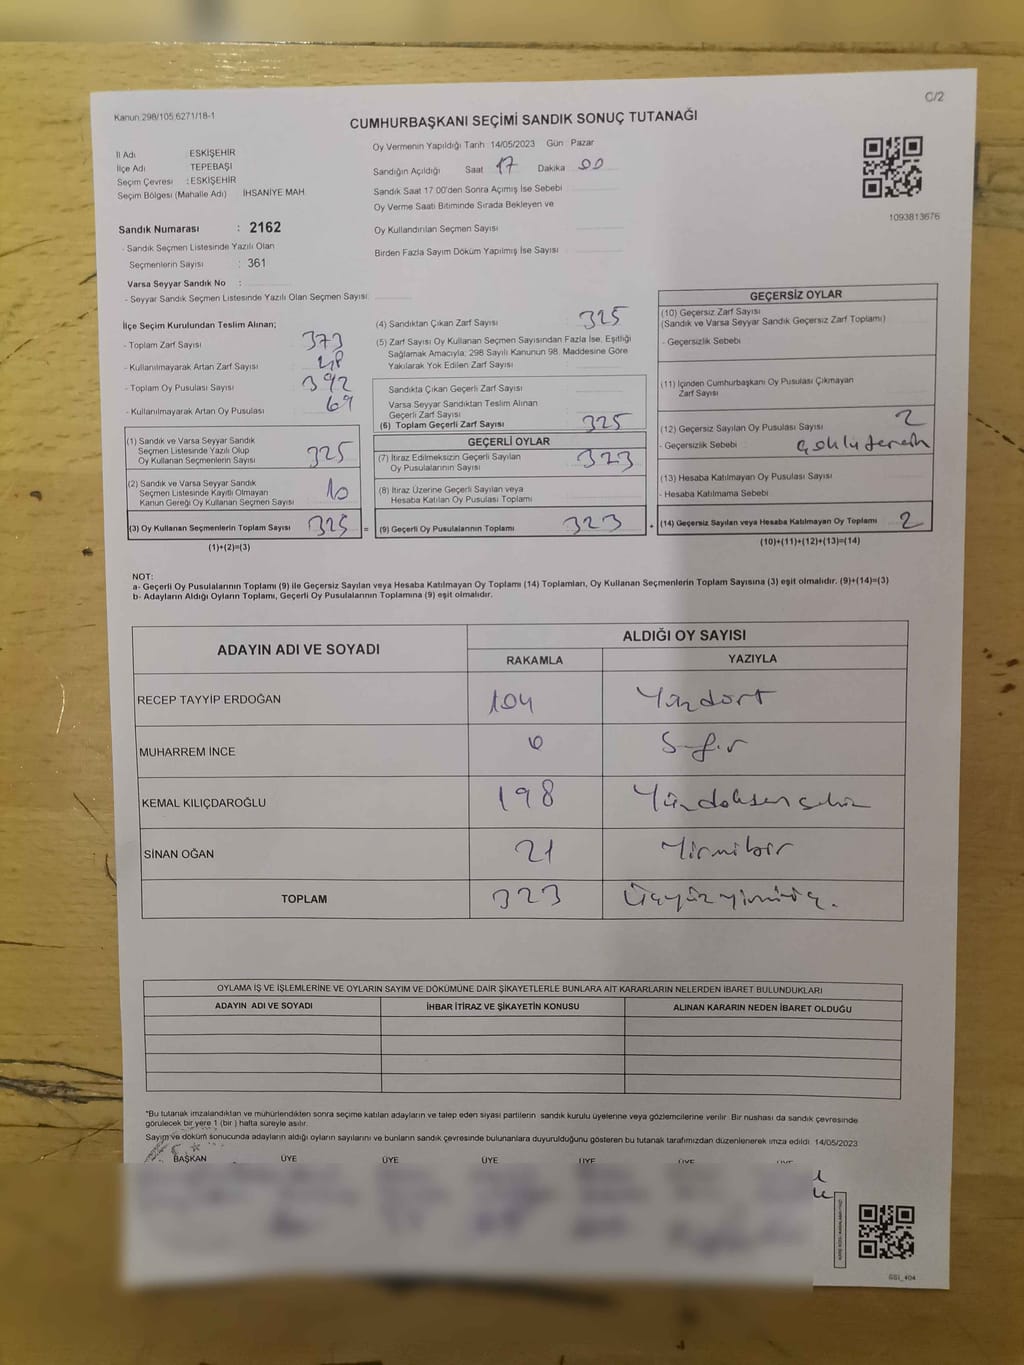 C/2
Kanun 298/105.6271/18-1
CUMHURBAŞKANI SEÇİMİ SANDIK SONUÇ TUTANAĞI
İl Adı ESKİŞEHİR
İlçe Adı TEPEBAŞI
Seçim Çevresi : ESKİŞEHİR
Seçim Bölgesi (Mahalle Adı) İHSANİYE MAH.
Sandık Numarası : 2162
- Sandık Seçmen Listesinde Yazılı Olan
Seçmenlerin Sayısı : 361
Varsa Seyyar Sandık No :
- Seyyar Sandık Seçmen Listesinde Yazılı Olan Seçmen Sayısı:
Oy Vermenin Yapıldığı Tarih 14/05/2023 Gün Pazar
Sandığın Açıldığı Saat 17 Dakika 00
Sandık Saat 17 00'den Sonra Açımış İse Sebebi
Oy Verme Saati Bitiminde Sırada Bekleyen ve
Oy Kullandırılan Seçmen Sayısı
Birden Fazla Sayım Döküm Yapılmış İse Sayısı
1093813676
İlçe Seçim Kurulundan Teslim Alınan;
- Toplam Zarf Sayısı 373
- Kullanılmayarak Artan Zarf Sayısı 48
- Toplam Oy Pusulası Sayısı 392
- Kullanılmayarak Artan Oy Pusulası 69
(1) Sandık ve Varsa Seyyar Sandık
Seçmen Listesinde Yazılı Olup
Oy Kullanan Seçmenlerin Sayısı 325
(2) Sandık ve Varsa Seyyar Sandık
Seçmen Listesinde Kayıtlı Olmayan
Kanun Gereği Oy Kullanan Seçmen Sayısı
(3) Oy Kullanan Seçmenlerin Toplam Sayısı 325 =
(1)+(2)=(3)
(4) Sandıktan Çıkan Zarf Sayısı 325
(5) Zarf Sayısı Oy Kullanan Seçmen Sayısından Fazla İse, Eşitliği
Sağlamak Amacıyla, 298 Sayılı Kanunun 98. Maddesine Göre
Yakılarak Yok Edilen Zarf Sayısı
Sandıkta Çıkan Geçerli Zarf Sayısı
Varsa Seyyar Sandıktan Teslim Alınan
Geçerli Zarf Sayısı
(6) Toplam Geçerli Zarf Sayısı 325
GEÇERLİ OYLAR
(7) İtiraz Edilmeksizin Geçerli Sayılan
Oy Pusulalarının Sayısı 323
(8) İtiraz Üzerine Geçerli Sayılan veya
Hesaba Katılan Oy Pusulası Toplamı
(9) Geçerli Oy Pusulalarının Toplamı 323 +
GEÇERSİZ OYLAR
(10) Geçersiz Zarf Sayısı
(Sandık ve Varsa Seyyar Sandık Geçersiz Zarf Toplamı)
- Geçersizlik Sebebi
(11) İçinden Cumhurbaşkanı Oy Pusulası Çıkmayan
Zarf Sayısı
(12) Geçersiz Sayılan Oy Pusulası Sayısı 2
- Geçersizlik Sebebi çoklu tercih
(13) Hesaba Katılmayan Oy Pusulası Sayısı
- Hesaba Katılmama Sebebi
(14) Geçersiz Sayılan veya Hesaba Katılmayan Oy Toplamı 2
(10)+(11)+(12)+(13)=(14)
NOT:
a- Geçerli Oy Pusulalarının Toplamı (9) ile Geçersiz Sayılan veya Hesaba Katılmayan Oy Toplamı (14) Toplamları, Oy Kullanan Seçmenlerin Toplam Sayısına (3) eşit olmalıdır. (9)+(14)=(3)
b- Adayların Aldığı Oyların Toplamı, Geçerli Oy Pusulalarının Toplamına (9) eşit olmalıdır.
ADAYIN ADI VE SOYADI ALDIĞI OY SAYISI
RAKAMLA YAZIYLA
RECEP TAYYİP ERDOĞAN 104 Yüzdört
MUHARREM İNCE 0 Sıfır
KEMAL KILIÇDAROĞLU 198 Yüzdoksansekiz
SİNAN OĞAN 21 Yirmibir
TOPLAM 323 Üçyüzyirmiüç.
OYLAMA İŞ VE İŞLEMLERİNE VE OYLARIN SAYIM VE DÖKÜMÜNE DAİR ŞİKAYETLERLE BUNLARA AİT KARARLARIN NELERDEN İBARET BULUNDUKLARI
ADAYIN ADI VE SOYADI İHBAR İTİRAZ VE ŞİKAYETİN KONUSU ALINAN KARARIN NEDEN İBARET OLDUĞU
*Bu tutanak imzalandıktan ve mühürlendikten sonra seçime katılan adayların ve talep eden siyasi partilerin sandık kurulu üyelerine veya gözlemcilerine verilir. Bir nüshası da sandık çevresinde
görülecek bir yere 1 (bir) hafta süreyle asılır.
Sayım ve döküm sonucunda adayların aldığı oyların sayılarını ve bunların sandık çevresinde bulunanlara duyurulduğunu gösteren bu tutanak tarafımızdan düzenlenerek imza edildi. 14/05/2023
BAŞKAN ÜYE ÜYE ÜYE ÜYE ÜYE ÜYE
GSI_404